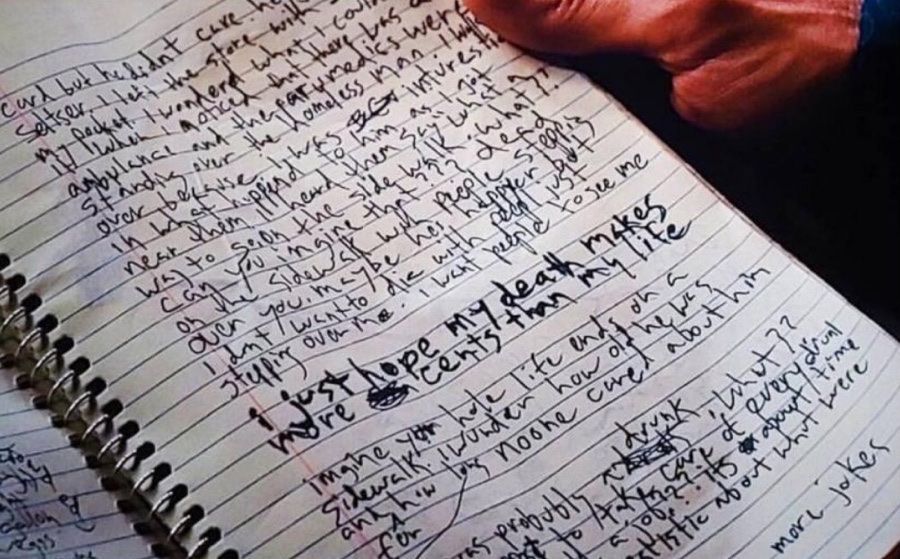 card but he didnt care. he
seltser I left the store with
my pocket. I wonderd what I could
if when I noticed that there was a
ambulance and the paramedics were
standig over the homeless man. I
over becaise I was interest
in what happend to him as I got
near them I heard them say what a
way to go on the side walk. what??
can you imagine that?? dead
on the sidewalk with people steppig
over you. maybe hes happier but
I dnt want to die with people just
steppig over me. I want people to see me
i just hope my death makes
more cents than my life
imgine your hole life ends on a
sidewalk. i wonder how old he was
and how is noone cared about him
for
was probably drunk, what??
to take care of every drun
a job? its about time
listic about what were
more jokes